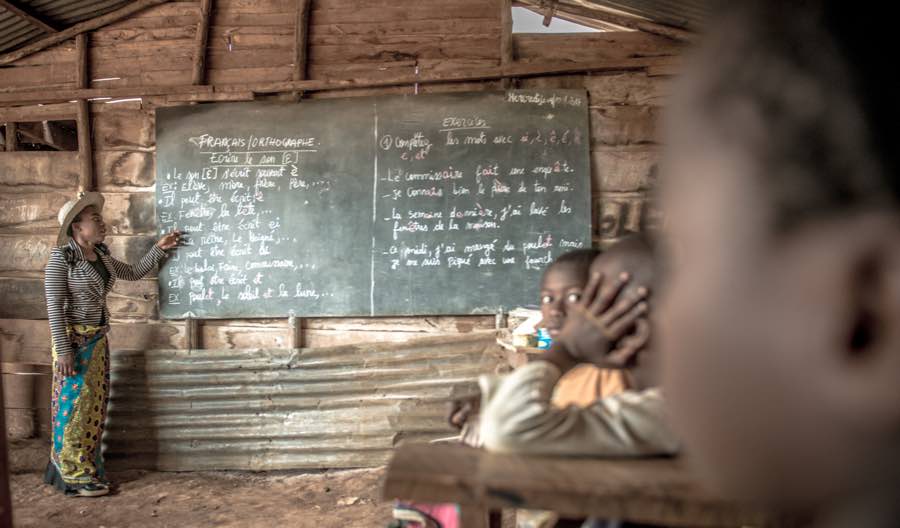 FRANÇAIS/ORTHOGRAPHE.
Ecrire le son [E]
• Le son [E] s'écrit souvent è
Ex: Elève, mère, frère, Père,...
• Il peut être écrit ê
Ex Fenêtre, la bête,...
peut être écrit ei
la reine, Le beigne,...
peut être écrit ai
Le balai, Faire, Commissaire,...
• Il peut être écrit et
Ex poulet, le soleil et la lune,...
Mercredi
Exercices
① Complétez les mots avec ei, è, ê, é,
e, et
- Le commissaire fait une enquête.
- Je connais bien le Père de ton ami.
- La semaine dernière, j'ai lavé les
fenêtres de la maison.
- Ce midi, j'ai mangé du poulet mais
je me suis piqué avec une fourch